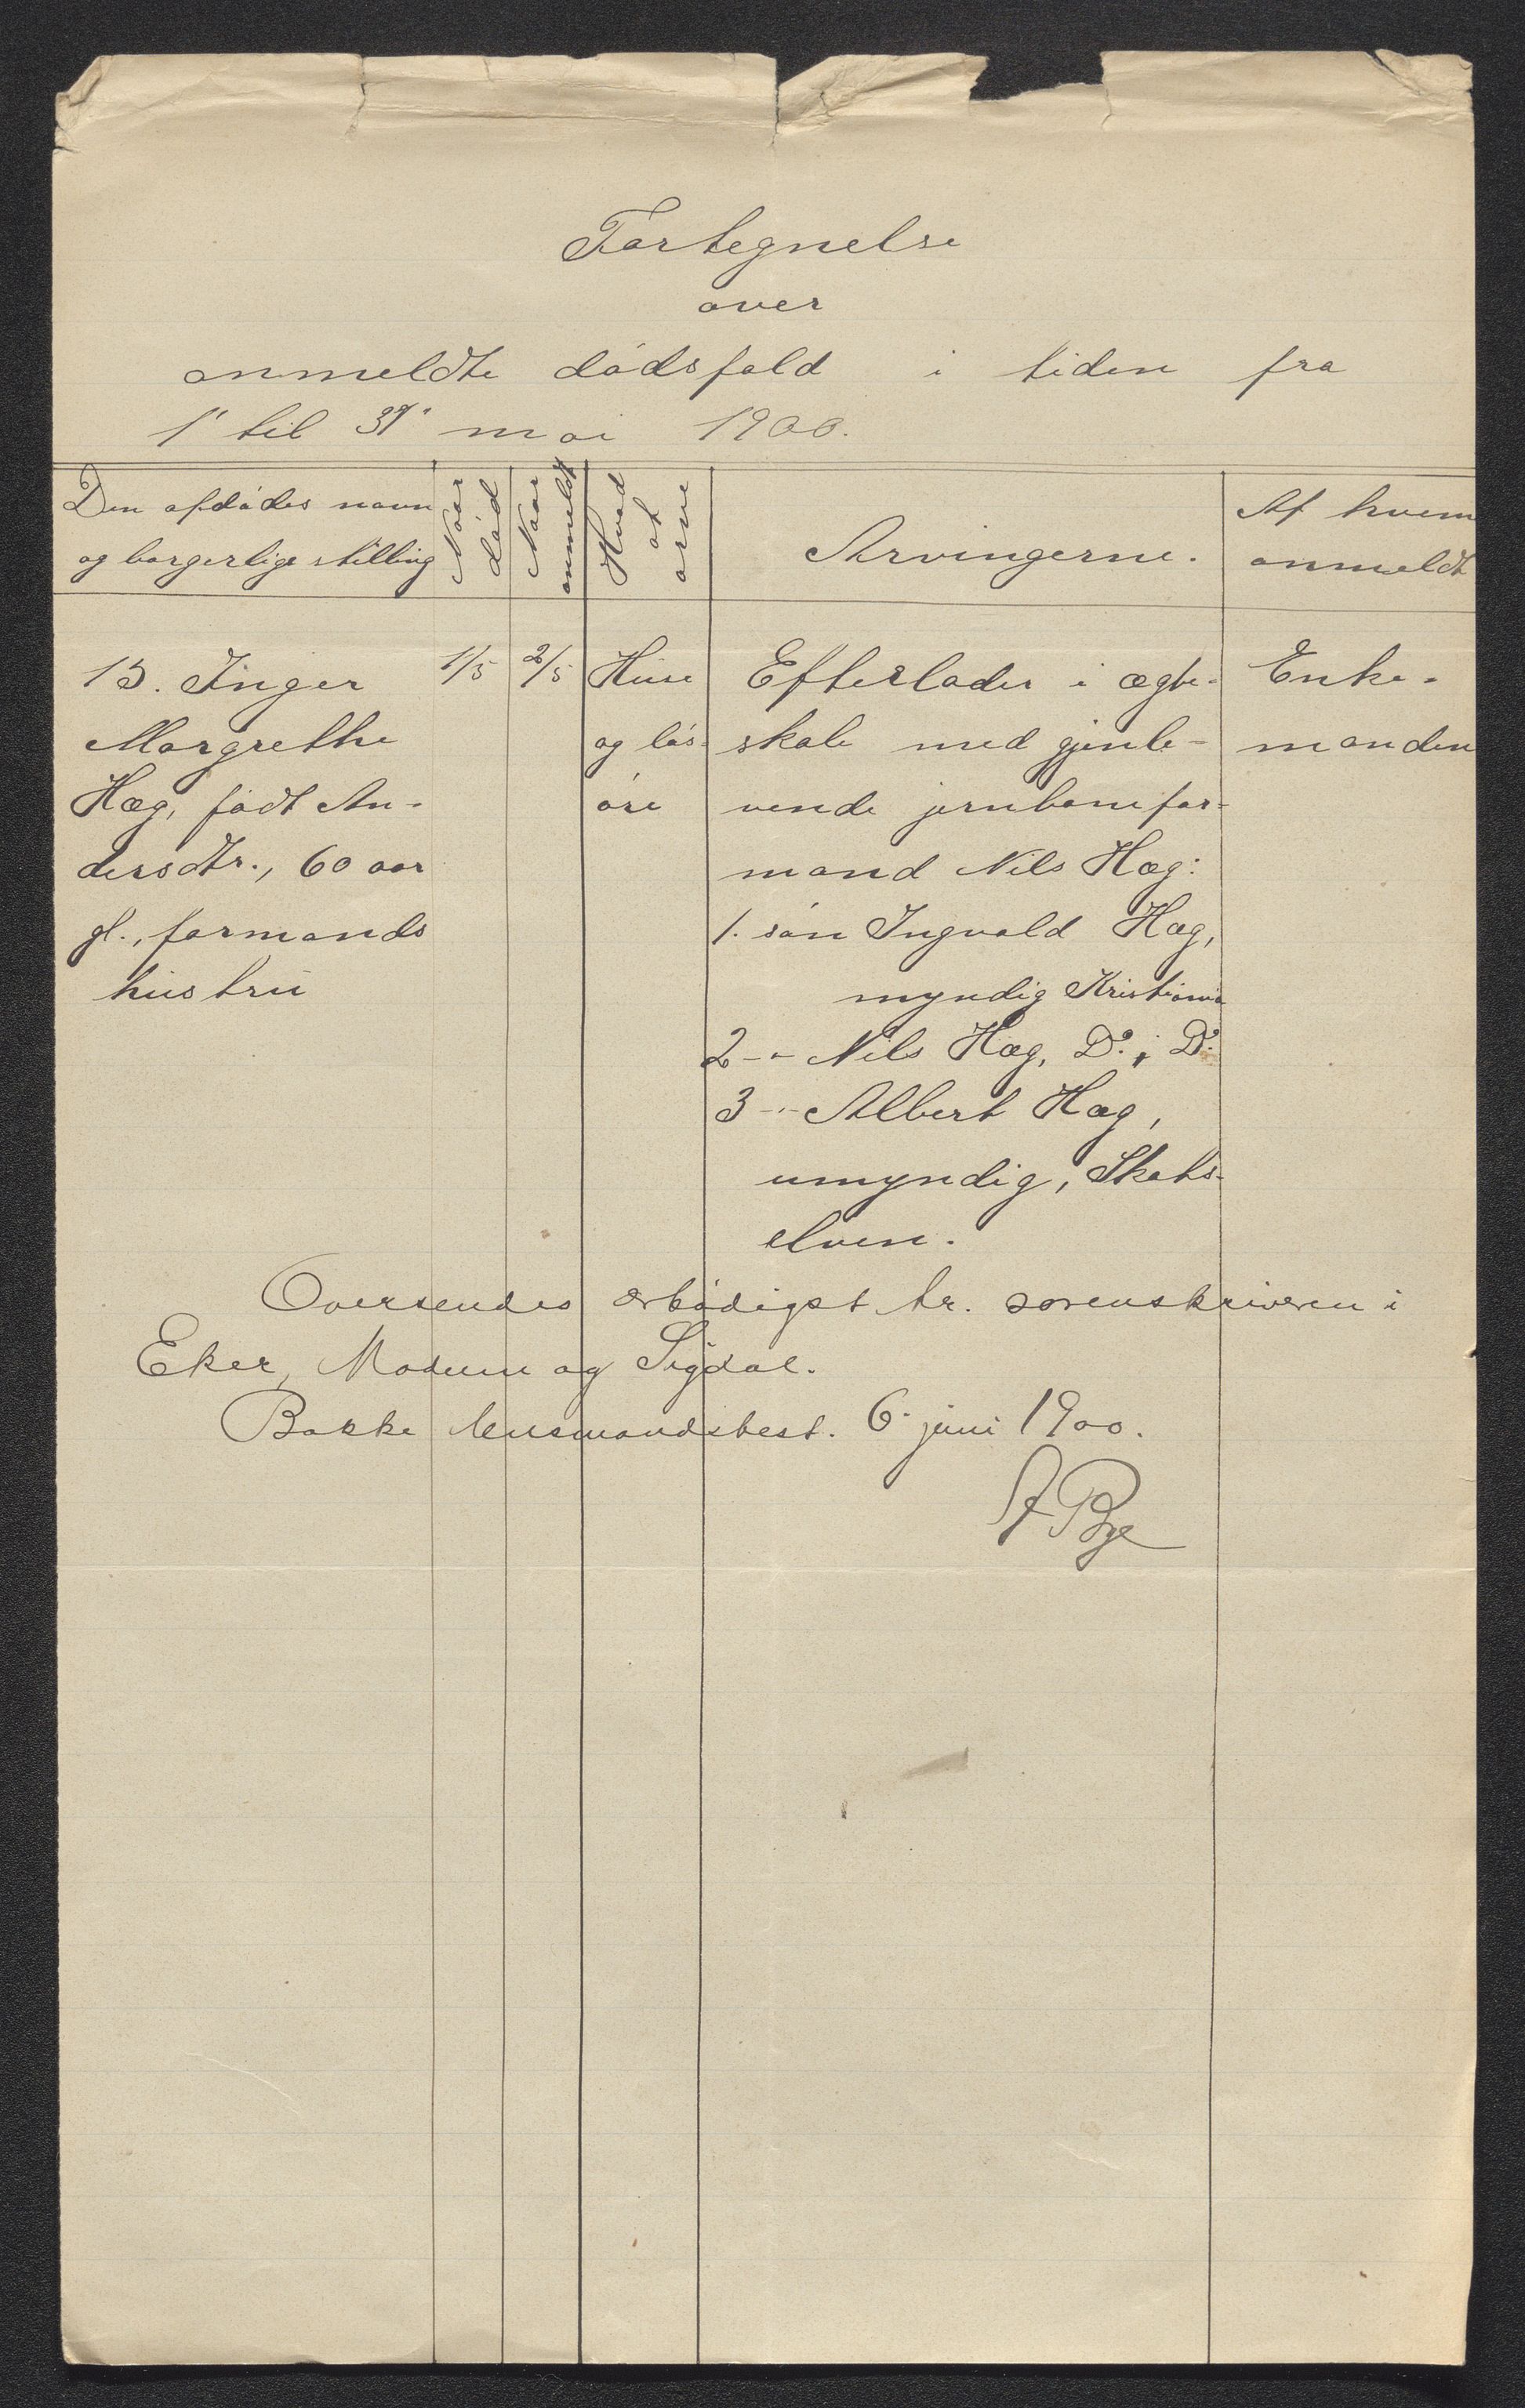 Fortegnelse
over
anmeldte dódsfald i tiden fra
1' til 31' mai 1900.
Den afdódes navn
og borgerlige stilling
Naar
död
Naar
anmeldt
Hvad
at
arve
Arvingerne.
Af hvem
anmeldt
13. Inger
Margrethe
Hæg, fódt An-
dersdtr., 60 aar
gl., formands
hustru
1/5
2/5
Huse
og lös-
öre
Efterlader i ægte-
skab med gjenle-
vende jernbanefor-
mand Nils Hæg:
1. sön Ingvald Hæg,
myndig Kristiania
2 - " - Nils Hæg, Do. i Do.
3 - " - Albert Hæg,
umyndig, Skots-
elven.
Enke-
manden
Oversendes ærbódigst hr. sorenskriveren i
Eker, Modum og Sigdal.
Bakke lensmandsbest. 6. juni 1900.
Bye